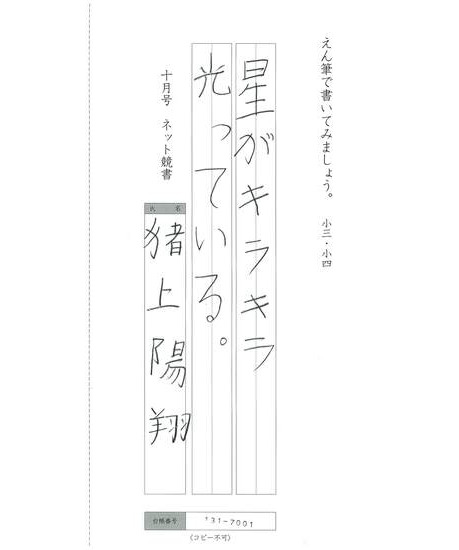 えん筆で書いてみましょう。 小三・小四
星がキラキラ
光っている。
十月号 ネット競書
氏名
猪上陽翔
台帳番号 131-7001
(コピー不可)